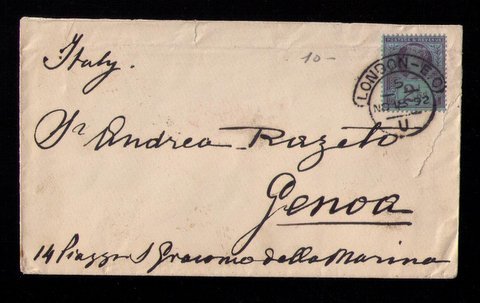 Italy.
10-
LONDON-E.C.
NO 15 92
U
Sr. Andrea Razeto
Genoa
14 Piazza S Giacomo della Marina